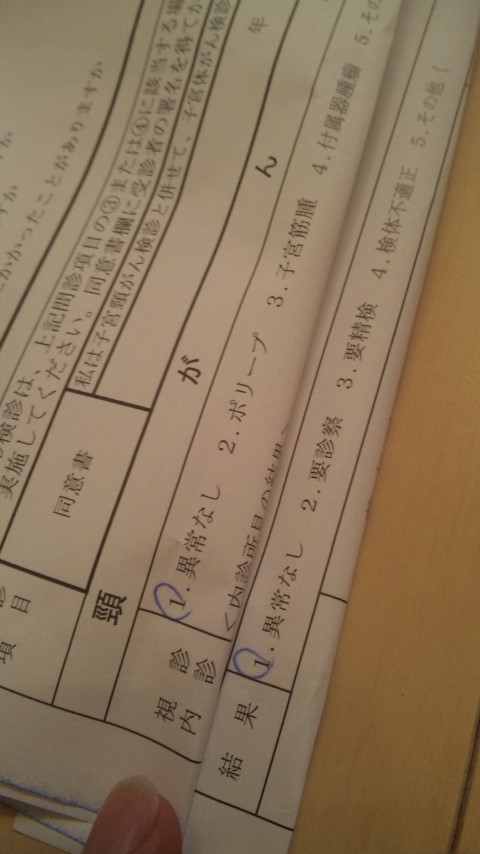 かかったことがありますか
検診は、上記問診項目の③または④に該当する場
実施してください。同意書欄に受診者の署名を得てか
同意書
私は子宮頸がん検診と併せて、子宮体がん検診
年
項目
頸がん
視診
内診
1．異常なし 2．ポリープ 3．子宮筋腫 4．付属器腫瘤 5．その
＜内診所見の結果＞
結果
1．異常なし 2．要診察 3．要精検 4．検体不適正 5．その他（